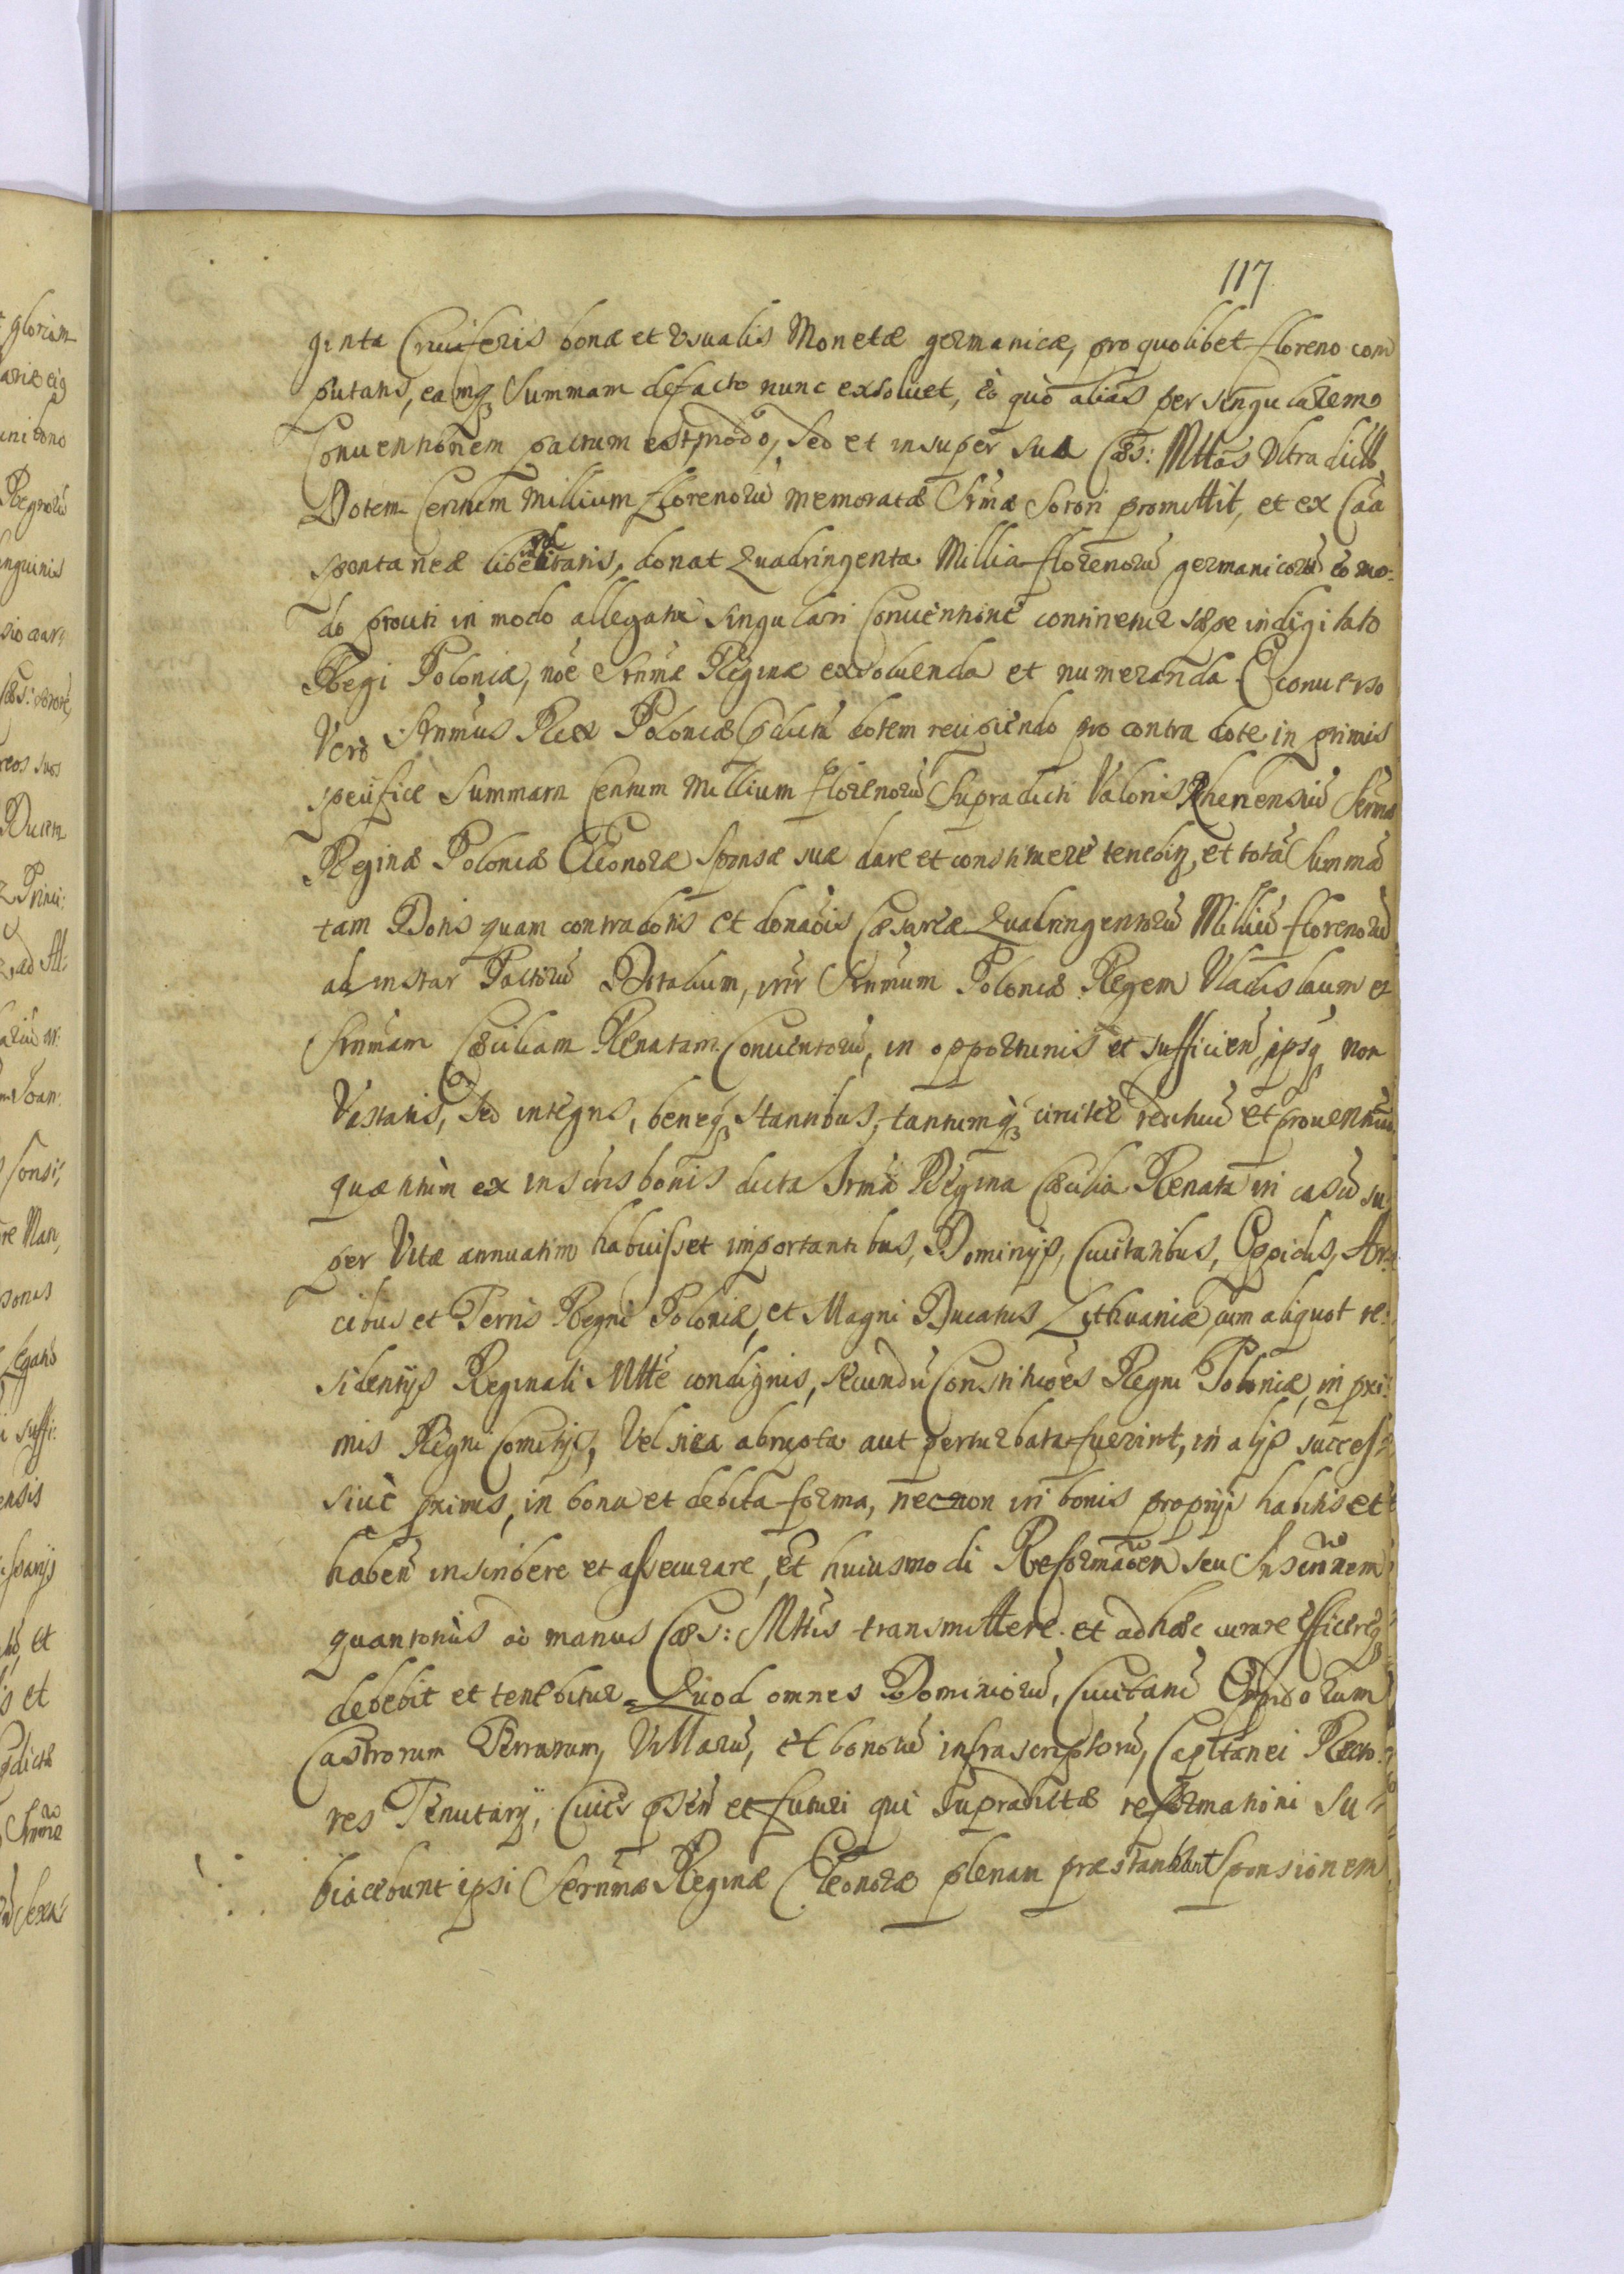 117
ginta Cruciferis bonæ et Usualis Monetæ germanicæ, pro quolibet floreno com
putatis, eamq₃ Summam de facto nunc exsoluet, eò quò alias per singularem
Conuentionem pactum est modo, Sed et insuper sua Cæs: Mttas Ultra dictã
Dotem Centum Millium Florenorũ memoratæ Srmæ Sorori promittit, et ex Caã
spontaneæ liberalitatis, donat Quadringenta Millia florenorũ germanicorũ eo mo:
do prouti in modo allegata singulari Conuentione continetur sæpe indigitato
Regi Poloniæ, noẽ Srnmæ Reginæ exsoluenda et numeranda. Econuerso
Verò Srnmus Rex Poloniæ dictã dotem recipiendo pro contra dote in primis
specifice Summam Centum Millium florenorũ Supradicti Valoris Rhenensiũ Sernmæ
Reginæ Poloniæ Eleonoræ Sponsæ suæ dare et constituere tenebir, et totã Summã
tam Dotis quam contradotis et donaõis Cæsareæ Quadringentorũ Milliũ florenorũ
ad instar Pactorũ Dotalium, intr Srnmum Poloniæ Regem Vladislaum et
Srnmam Cæciliam Renatam Conuentorũ, in opportunis et sufficien̄, ipsq₃ non
Vastatis, sed integris, beneq₃ Stantibus, tantumq₃ circiter redituũ et prouentuũ
quantùm ex inscris bonis dicta Srmã Regina Cæcilia Renata in casũ su
per Vitæ annuatim habuisset importantibus, Dominijs, Ciuitatibus, Oppidis, Ar:
cibus et Terris Regni Poloniæ, et Magni Ducatus Lithuaniæ, cum aliquot re:
sidentijs Reginali Mtte condignis, secundũ Constituoẽs Regni Poloniæ, in pri:
mis Regni Comitijs, Vel si ea abrupta aut perturbata fuerint, in alijs success:
siuè primis, in bona et debita forma, necnon in bonis proprijs habitis et
haben̄ inscribere et assecurare, et huiusmodi Reformãoẽm seu Inscriõnem
quantotiùs ad manus Cæs: Mttis transmittere et ad hæc curare efficereq₃
debebit et tenebitur. Quod omnes Dominiorũ, Ciuitatũ Oppidorum
Castrorum Terrarum, Villarũ, et bonorũ infrascriptorũ, Capitanei Recto:
res Tenutarij, Ciues p̄sen̄ et futuri qui supradictæ reformationi Su:
biacebunt ipsi Sernmæ Reginæ Eleonoræ plenam præstabunt Sponsionem